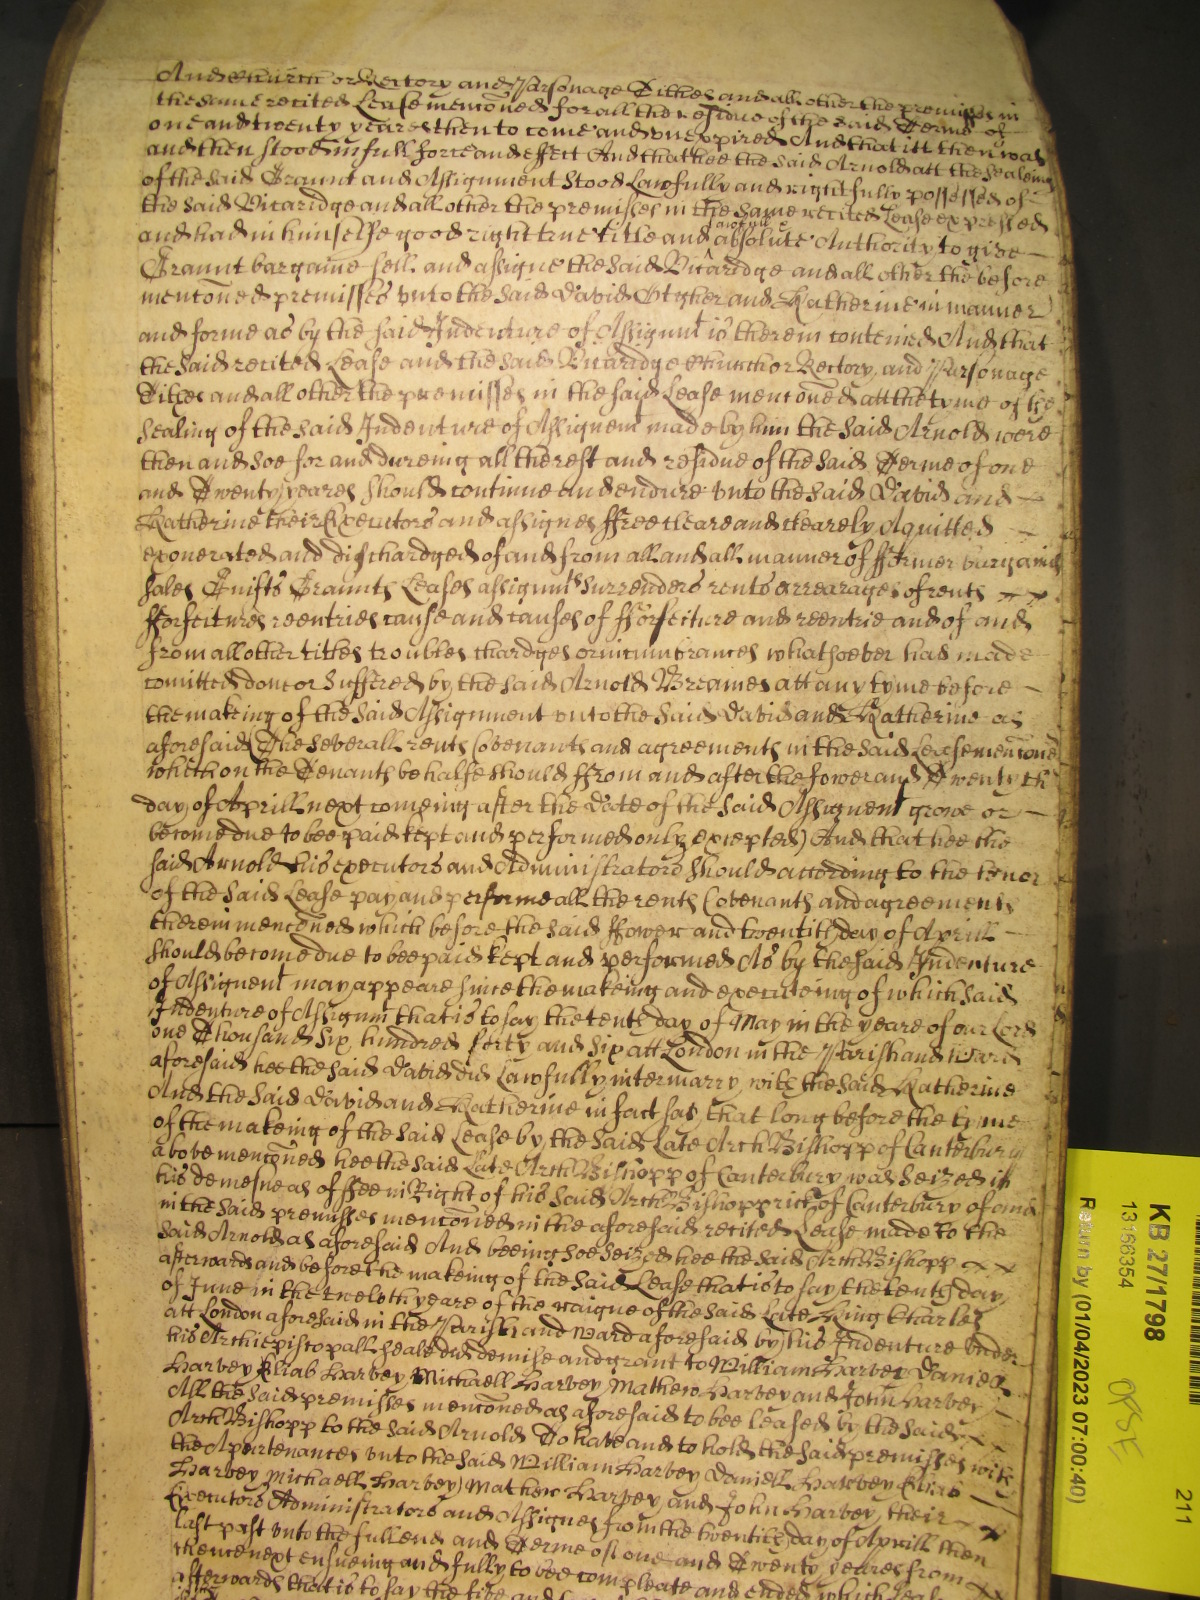 And Church or Rectory and Parsonage Tithes and all other the premisses in
the same recited Lease menconed for all the residue of the said Terme of
one and twenty yeares then to come and vnexpired And that itt then was
and then stood in full force and effect And that hee the said Arnold att the sealeing
of the said Graunt and Assignment stood Lawfully and rightfully possessed of
the said Vicaridge and all other the premisses in the same recited Lease expressed
and had in himselfe good right true title and absolute Authority to give
Graunt bargaine sell and assigne the said Vicaridge and all other the before
menconed premisses vnto the said David and Katherine in manner
and forme as by the said Indenture of Assignmt is therein conteined And that
the said recited Lease and the said Vicaridge Church or Rectory and Parsonage
Tithes and all other the premisses in the said Lease menconed att the tyme of the
sealing of the said Indenture of Assignemt made by him the said Arnold were
then and soe for and dureing all the rest and residue of the said Terme of one
and Twenty yeares should continue and endure vnto the said David and
Katherine their Executors and assignes ffree cleare and clearely Aquitted
exonerated and dischardged of and from all and all manner of fformer bargaines
sales Guifts Graunts Leases assignmts Surrenders rents arrearages of rents
fforfeitures reentries cause and causes of fforfeiture and reentrie and of and
from all other titles troubles chardges or incumbrances whatsoever had made
comitted done or suffered by the said Arnold Breames att any tyme before
the makeing of the said Assignment vnto the said David and Katherine as
aforesaid (The severall rents Covenants and agreements in the said Lease menconed
which on the Tenants behalfe should ffrom and after the fower and Twenty th
day of Aprill next comeing after the Date of the said Assignemt growe or
become due to bee paid kept and performed only excepted) And that hee the
said Arnold his executors and Administrators should according to the tenor
of the said Lease pay and performe all the rents Covenants and agreements
therein menconed which before the said ffower and twentith day of Aprill
should become due to bee paid kept and performed As by the said Indenture
of Assignemt may appeare since the makeing and executeing of which said
Indenture of Assignmt that is to say the tenth day of May in the yeare of our Lord
one Thousand Six hundred forty and six att London in the Parish and Ward
aforesaid hee the said David did Lawfully intermarry with the said Katherine
And the said David and Katherine in fact say that long before the tyme
of the makeing of the said Lease by the said Late Arch Bishopp of Canterbury
above menconed hee the said Late Arch Bishopp of Canterbury was seized in
his demesne as of ffee in Right of his said Arch Bishopprick of Canterbury of and
in the said premisses menconed in the aforesaid recited Lease made to the
said Arnold as aforesaid And beeing soe seized hee the said Arch Bishopp
afterwards and before the makeing of the said Lease that is to say the tenth day
of June in the twelfth yeare of the raigne of the said Late King Charles
att London aforesaid in the Parish and Ward aforesaid by his Indenture vnder
his Archiepiscopall seale did demise and grant to William Harvey Daniell
Harvey Eliab Harvey Michaell Harvey Mathew Harvey and John Harvey
All the said premisses menconed as aforesaid to bee leased by the said
Arch Bishopp to the said Arnold To have and to hold the said premisses with
the Apurtenances vnto the said William Harvey Daniell Harvey Eliab
Harvey Michaell Harvey Mathew Harvey and John Harvey their
Executors Administrators and Assignes from the twentith day of Aprill then
last past vnto the full end and Terme of one and Twenty yeares from
thence next ensueing and fully to bee compleate and ended which Lease
afterwards that is to say the
KB 27/1798
13166354
Return by (01/04/2023 07:00:40)
211